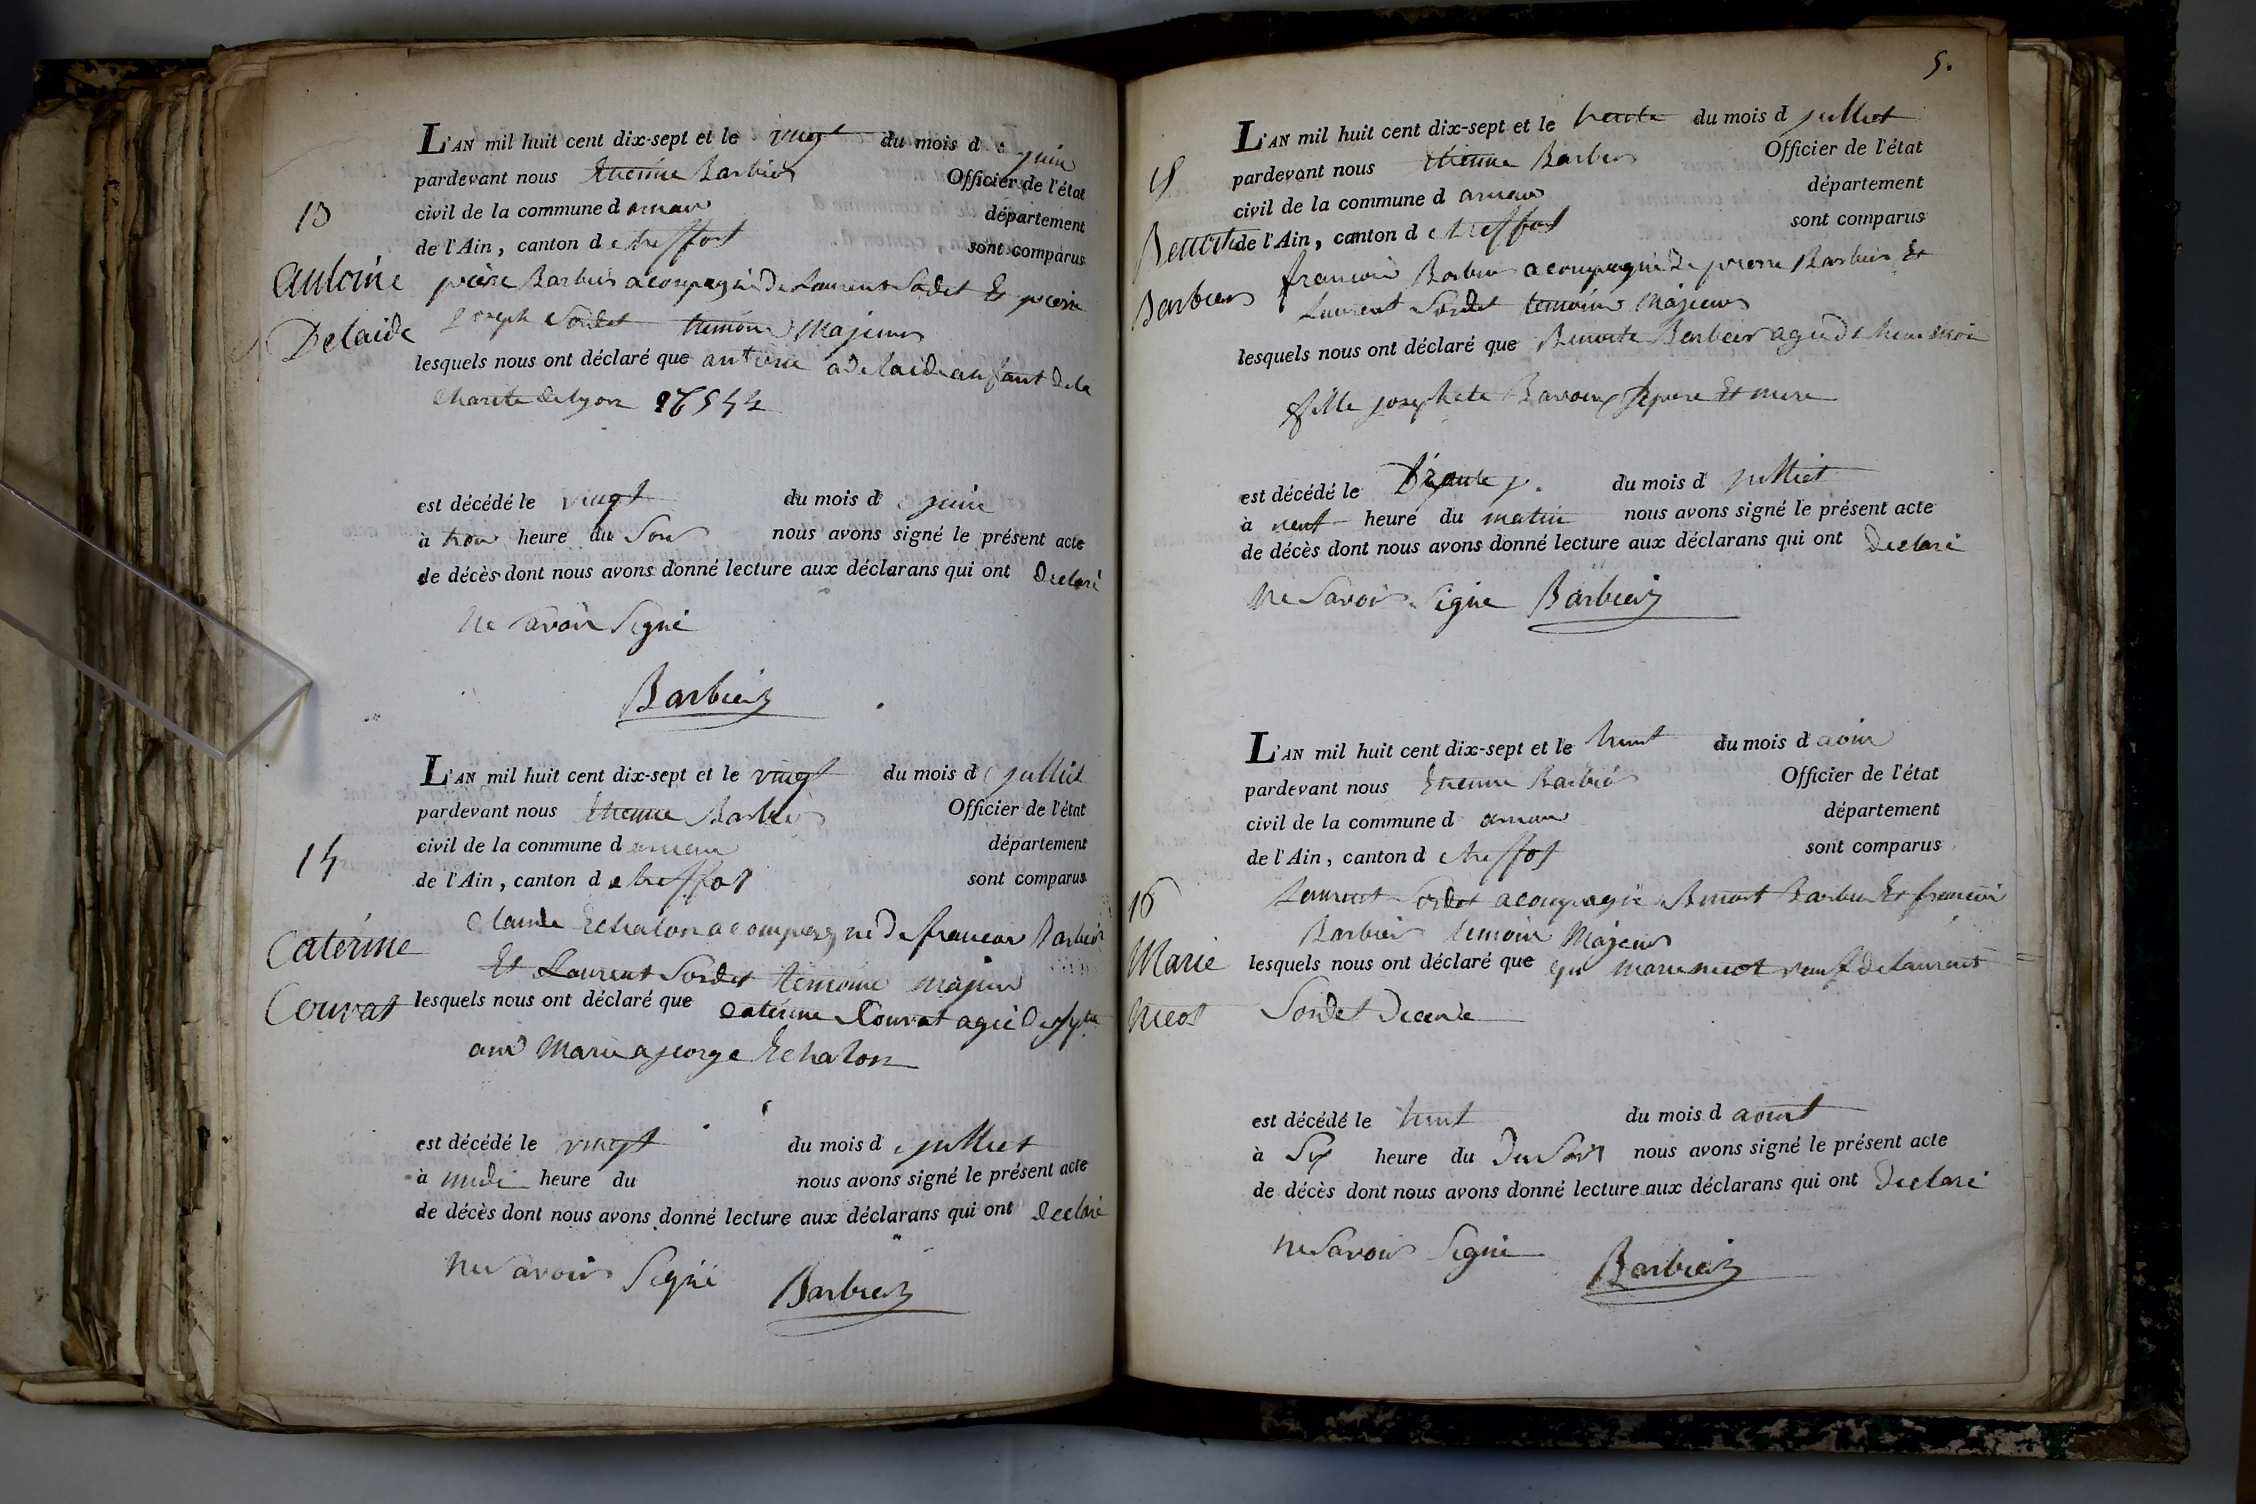 L'AN mil huit cent dix-sept et le vingt du mois de juin
pardevant nous Etienne Barbier Officier de l'état
civil de la commune d arnan département
de l'Ain, canton de treffort sont comparus
13
Antoine
Delaide
pierre Barbier acompagné De Laurent Sordet Et pierre
Joseph Sordet temoins Majeurs
lesquels nous ont déclaré que antoine adelaide anfant de la
charite de lyon
est décédé le vingt du mois de juin
à troi heure du Soir nous avons signé le présent acte
de décès dont nous avons donné lecture aux déclarans qui ont Declaré
Ne Savoir Signé
Barbier
L'AN mil huit cent dix-sept et le vingt du mois de julliet
pardevant nous Etienne Barbier Officier de l'état
civil de la commune d arnan département
de l'Ain, canton de treffort sont comparus
14
Caterine
Couvat
Claude Echalon acompagné De francoi Barbier
Et Laurent Sordet temoins majeur
lesquels nous ont déclaré que Caterine Couvat agée De
ans Marie a george Echalon
est décédé le vingt du mois de julliet
à midi heure du nous avons signé le présent acte
de décès dont nous avons donné lecture aux déclarans qui ont Declaré
Ne Savoir Signé Barbier
5.
L'AN mil huit cent dix-sept et le trente du mois d julliet
pardevant nous Etienne Barbier Officier de l'état
civil de la commune d arnan département
de l'Ain, canton de treffort sont comparus
15
Benoite
Barbier
francoi Barbier acompagné De pierre Barbier Et
Laurent Sordet temoins Majeurs
lesquels nous ont déclaré que Benoite Barbier agée De moi
fille josephete Bavoux pere Et mere
est décédé le du mois d julliet
à neuf heure du matin nous avons signé le présent acte
de décès dont nous avons donné lecture aux déclarans qui ont Declaré
Ne Savoir Signe Barbier
L'AN mil huit cent dix-sept et le du mois d
pardevant nous Etienne Barbier Officier de l'état
civil de la commune d arnan département
de l'Ain, canton de treffort sont comparus
16
Marie
nicot
Laurent Sordet acompagné Benoit Barbier Et francoi
Barbier temoins Majeurs
lesquels nous ont déclaré que que Marie nicot veuf de laurent
Sordet Decede
est décédé le du mois d aout
à Six heure du Du Soir nous avons signé le présent acte
de décès dont nous avons donné lecture aux déclarans qui ont Declaré
ne Savoir Signé Barbier